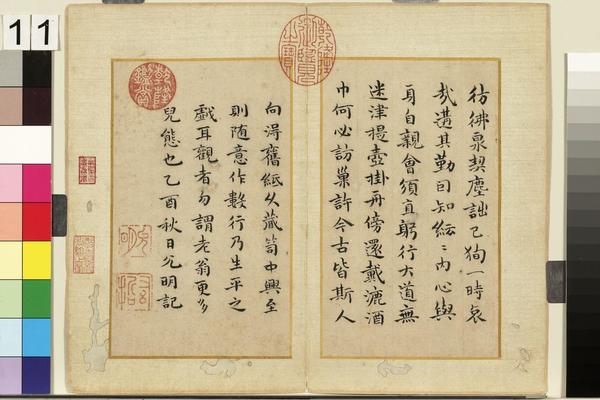 11
乾隆御覽之寶
彷彿泉契塵詘己狗一時哀
哉遘其勤自知紜〻內心與
身自親會須直躬行大道無
迷津提壺掛舟傍還戴漉酒
巾何必訪巢許今古皆斯人
乾隆鑑賞
向得舊紙久藏笥中興至
則随意作數行乃生平之
戲耳觀者勿謂老翁更多
兒態也乙酉秋日允明記